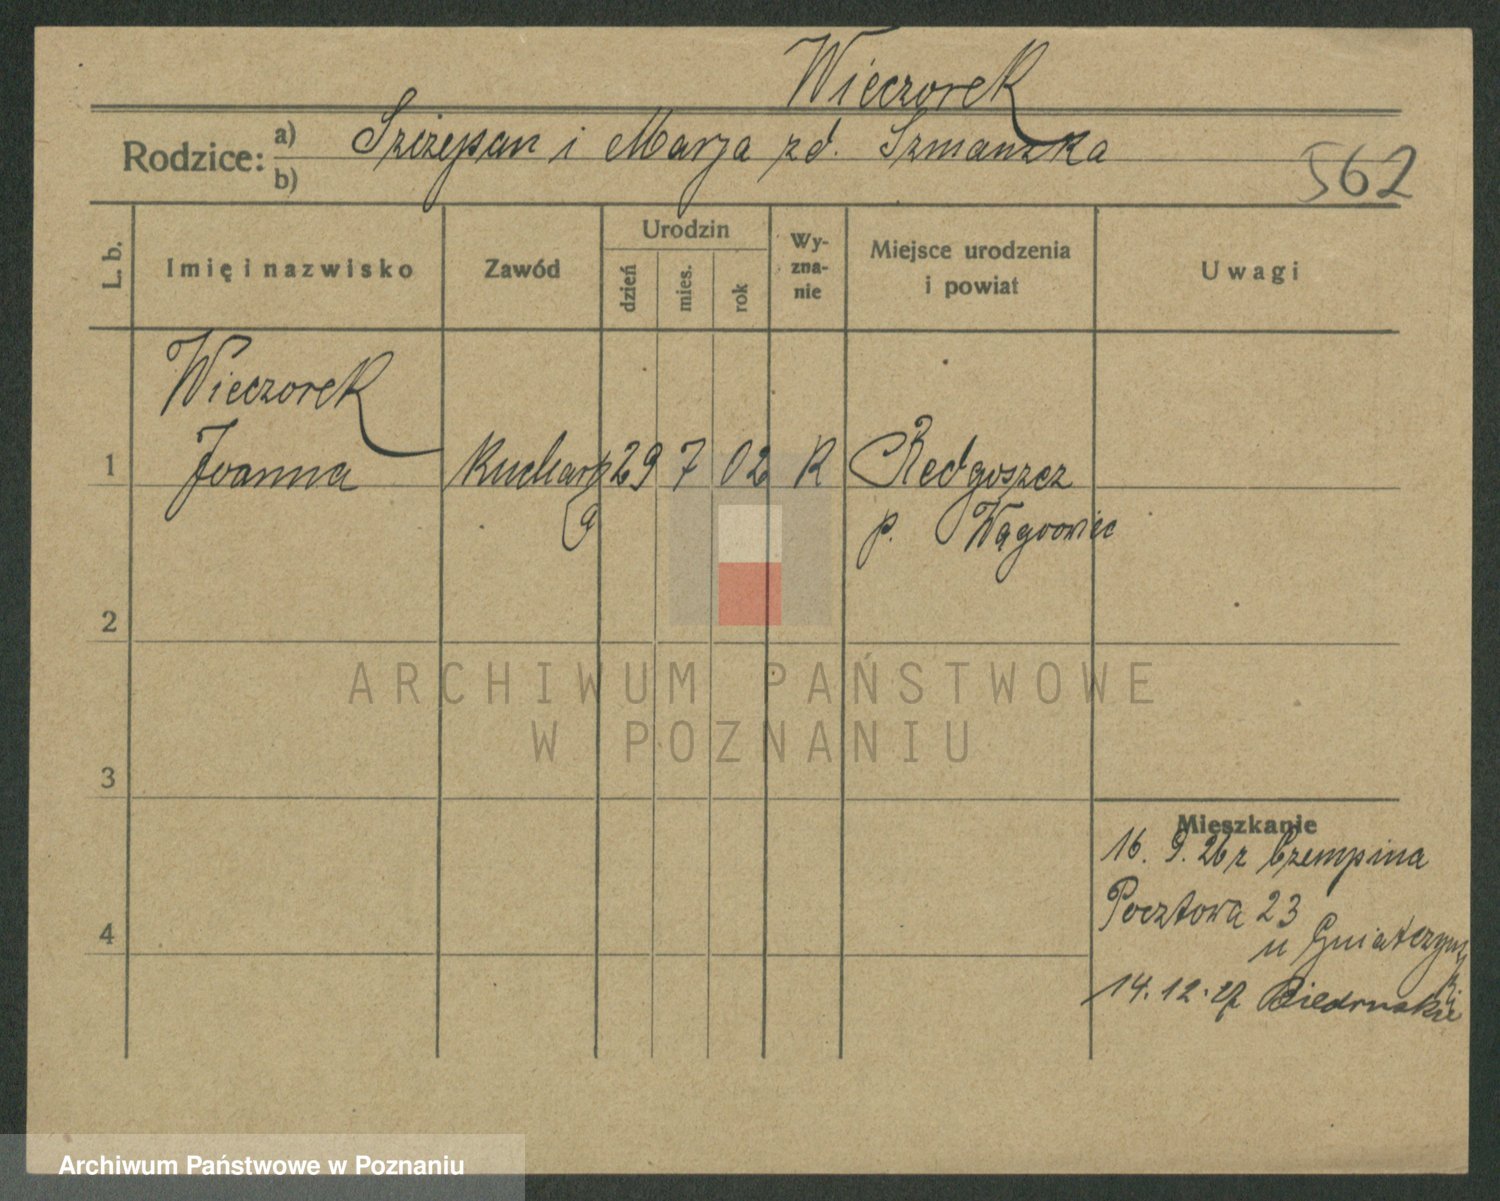 Wieczorek
Rodzice: a) Szczepan i Marja zd. Szmanzka
b)
562
L. b.
Imię i nazwisko
Zawód
Urodzin
dzień
mies.
rok
Wy-
zna-
nie
Miejsce urodzenia
i powiat
Uwagi
Wieczorek
1 Joanna Kuchark 29 7 02 R Redgoszcz
a p. Wągrowiec
2
3
4
Mieszkanie
16. 9. 26 r Czempina
Pocztowa 23
u
14. 12. 27
ARCHIWUM PAŃSTWOWE
W POZNANIU
Archiwum Państwowe w Poznaniu